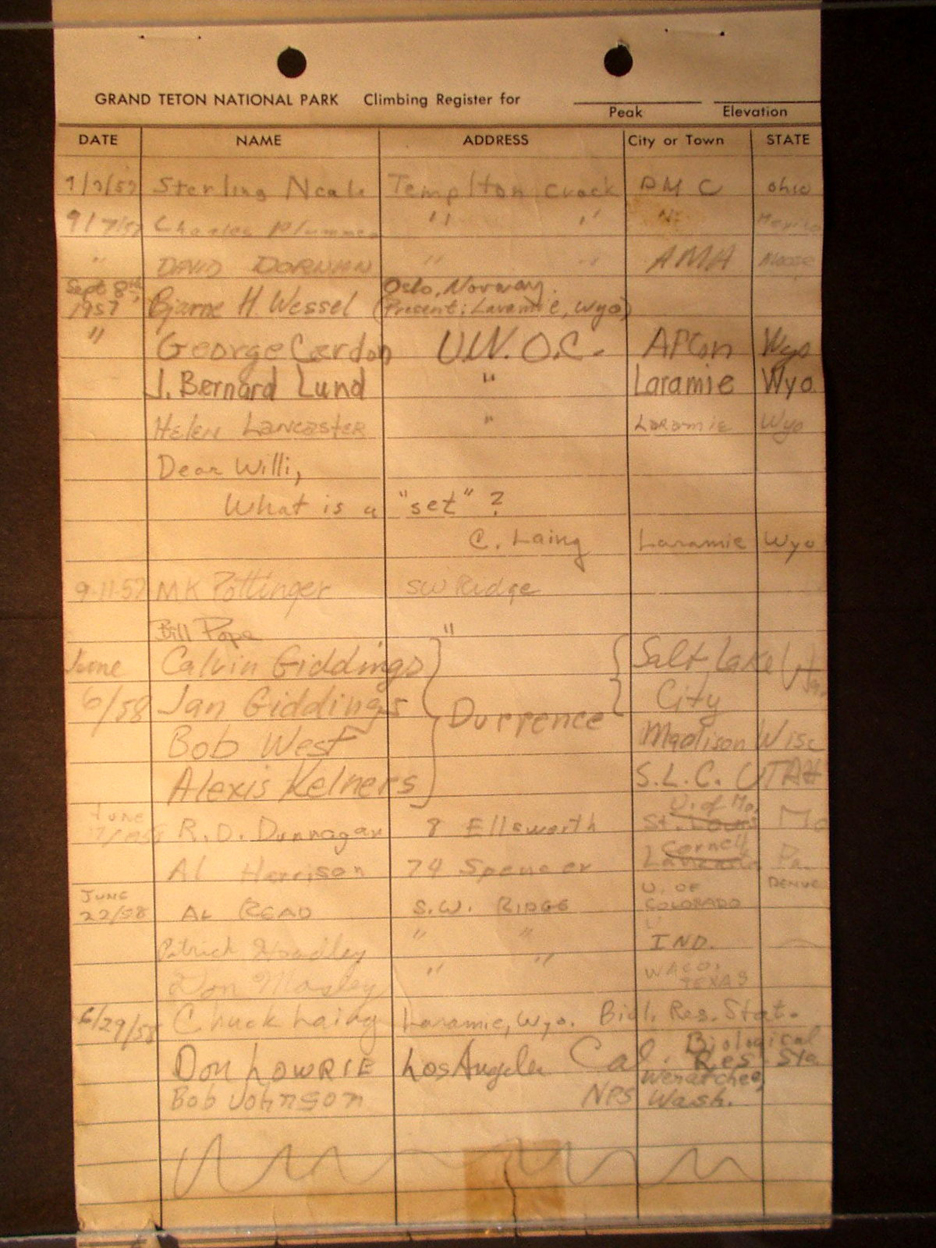 GRAND TETON NATIONAL PARK Climbing Register for
Peak Elevation
DATE NAME ADDRESS City or Town STATE
Sterling Neale Templton Crack DMC Ohio
9/7/57 Charles Plummer " "
" DAVID DORNAN " " AMA Moose
Sept 8th 1957 Bjarne H Wessel Oslo, Norway. (Present; Laramie, Wyo)
" George Cardon U.W.O.C. Afton Wyo
J. Bernard Lund " Laramie Wyo.
Helen Lancaster " Laramie Wyo
Dear Willi,
What is a "set" ?
C. Laing Laramie Wyo
9-11-57 MK Pottinger SW Ridge
Bill Pope "
June Calvin Giddings Salt Lake Utah
6/58 Jan Giddings Durrence City
Bob West Madison Wisc
Alexis Kelners S.L.C. UTAH
June R.D. Dunnagan 8 Ellsworth U. of Mo. St. Louis Mo
Al Harrison 74 Spencer Cornell Pa.
JUNE 22/58 AL READ S.W. RIDGE U. OF COLORADO DENVER
Patrick Hoadley " " U IND.
Don Mosley " " WACO, TEXAS
6/29/58 Chuck Laing Laramie, Wyo. Biol. Res. Stat.
Don Lowrie Los Angeles Cal. Biological Res Sta
Bob Johnson NPS Wenatchee, Wash.